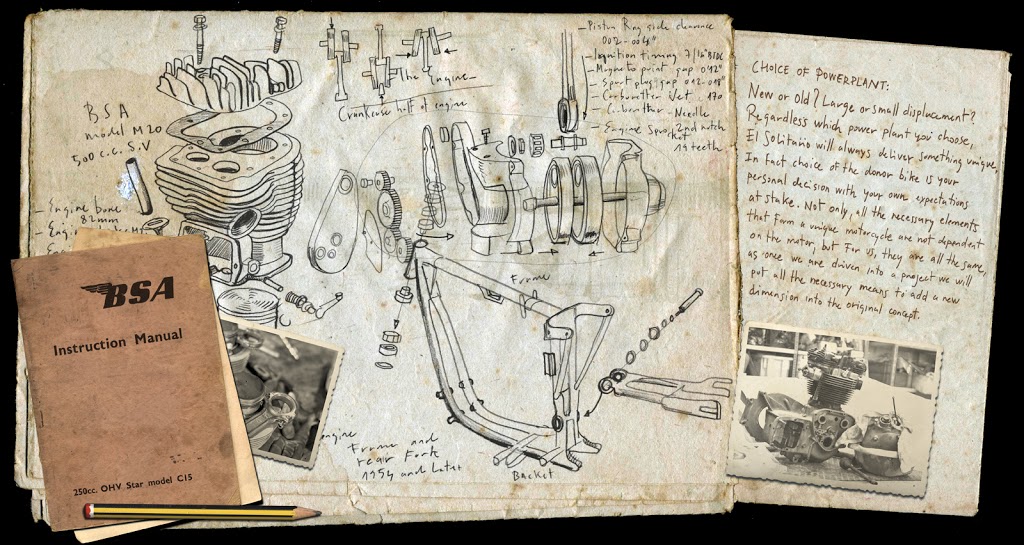 BSA
model M20
500 c.c. S.V
- Engine bore
82mm
The Engine
Crankcase half of engine
- Piston Ring side clearance
.002 - .004"
- Ignition timing 7/16" BTDC
- Magneto point gap 0'12"
- Spark plug gap 012-018"
- Carburetter Jet. 170
- Carburetter - Needle
- Engine Sprocket 2nd notch
19 teeth
Frame
engine
Frame and
rear Fork
1954 and later
Bracket
BSA
Instruction Manual
250cc. OHV Star model C15
CHOICE OF POWERPLANT:
New or old? Large or small displacement?
Regardless which power plant you choose,
El Solitario will always deliver something unique,
In fact choice of the donor bike is your
personal decision with your own expectations
at stake. Not only, all the necessary elements
that form a unique motorcycle are not dependent
on the motor, but For us, they are all the same,
as once we are driven into a project we will
put all the necessary means to add a new
dimension into the original concept.